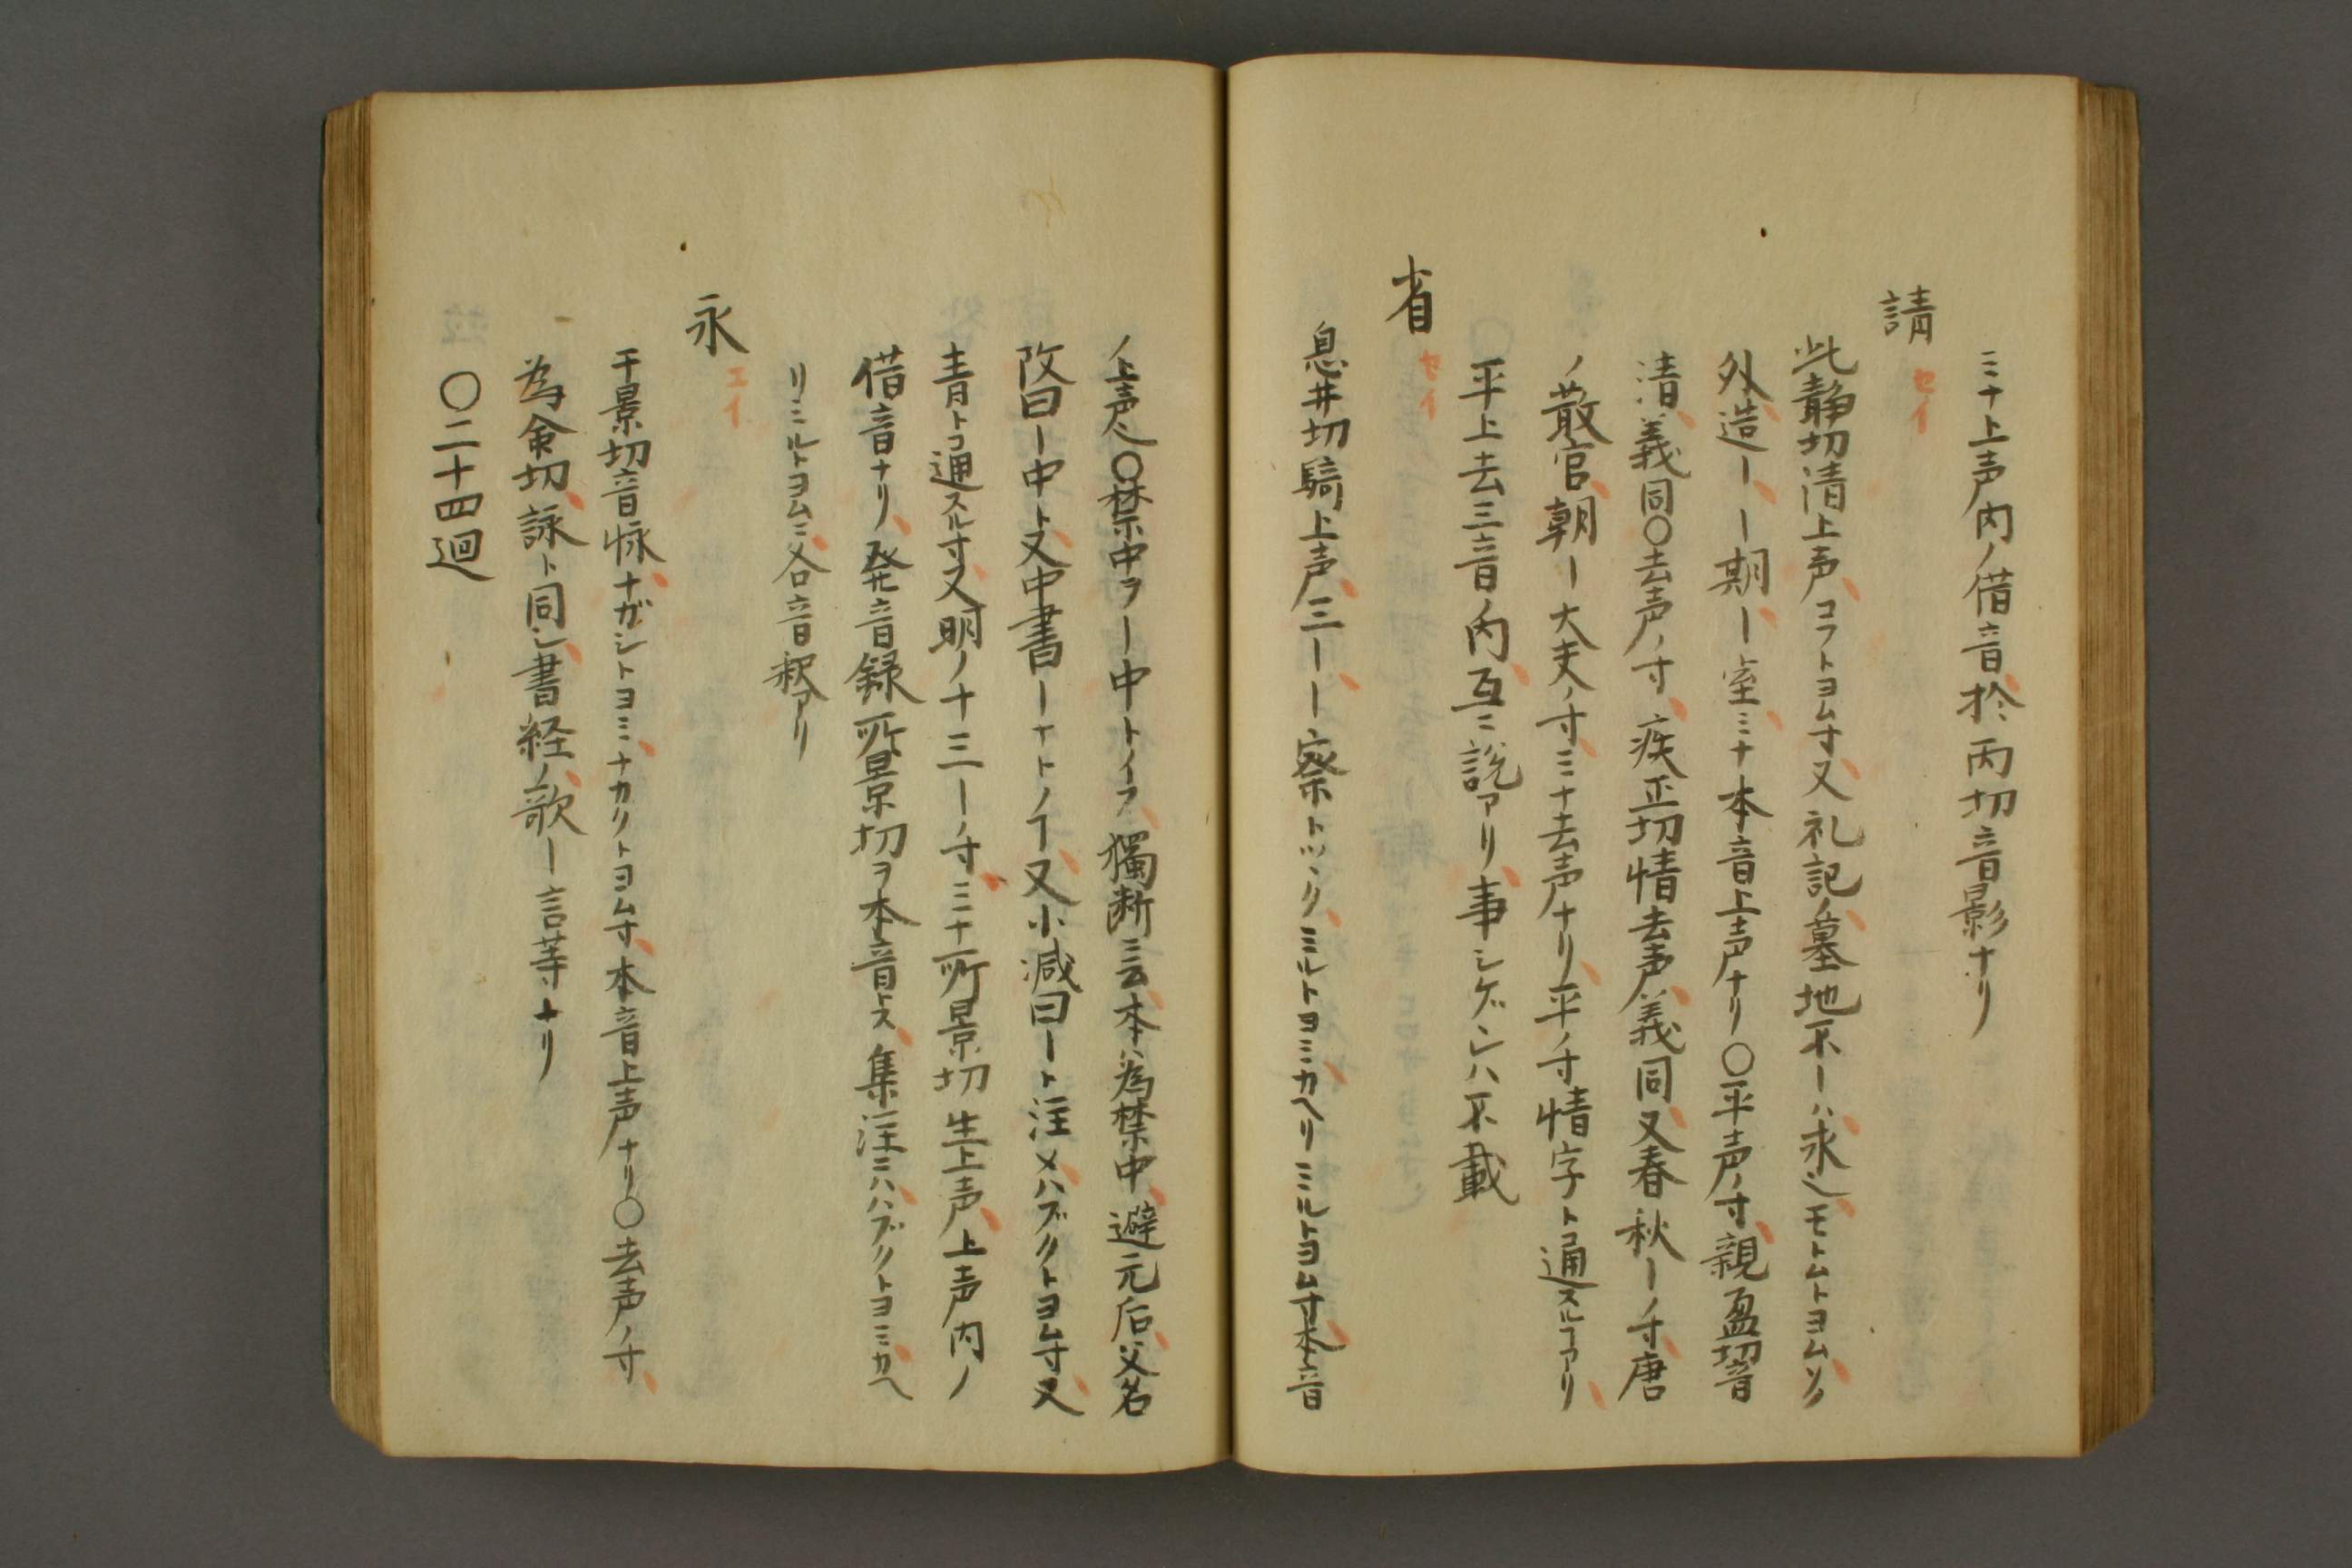 ミナ上声内ノ借音、於丙切音影ナリ
請
セイ
此静切清上声、コフトヨム寸、又礼記ノ墓地不ーハ求也、モトムトヨム、ソノ
外造ー、ー期ー、ー室、ミナ本音上声ナリ〇平声ノ寸、親盈切音
清、義同〇去声ノ寸、疾正切情去声、義同、又春秋ーノ寸、唐
ノ散官朝ー大夫ノ寸、ミナ去声ナリ、平ノ寸情字ト通スルヿアリ、
平上去三音ノ内、互ニ説アリ、事シゲレハ不載
省
セイ
息井切騂上声、三ーー察トツヾク、ミルトヨミ、カヘリミルトヨム寸、本音
ノ上声也〇禁中ヲー中トイフ、獨断ニ云、本ハ為禁中、避元后父名、
改曰ー中ト、又中書ーナトノー、又小減曰ート注メ、ハブクトヨム寸、又
眚トコ通スル寸、又明ノ十三ーノ寸、ミナ所景切生上声、上声内ノ
借音ナリ、発音録所景切ヲ本音トス、集注ニハ、ハブクトヨミ、カヘ
リミルトヨムニ、各音釈アリ
永
エイ
于景切音怺、ナガシトヨミ、ナカクトヨム寸、本音上声ナリ〇去声ノ寸、
為命切、詠ト同シ、書経ノ歌ー言等ナリ
〇二十四迥